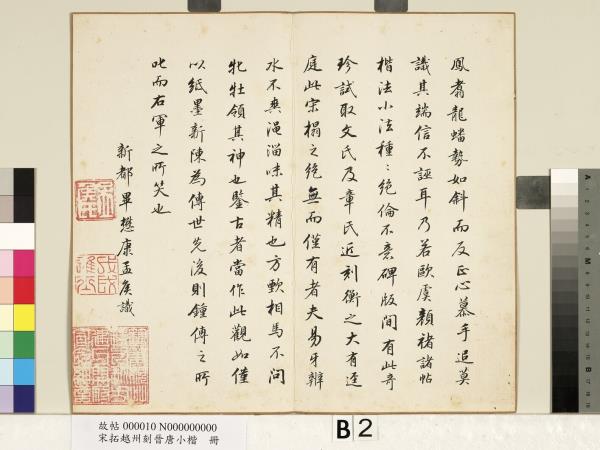 鳳翥龍蟠勢如斜而反正心慕手追莫
議其端信不誣耳乃若歐虞顏褚諸帖
楷法小法種:絕倫不意碑版間有此奇
珍試取文氏及章氏近刻衡之大有逕
庭此宋搨之絕無而僅有者夫易牙辨
水不爽澠淄味其精也方歅相馬不問
牝牡領其神也鑒古者當作此觀如僅
以紙墨新陳為傳世先後則鍾傅之所
叱而右軍之所笑也
新都畢懋康孟侯識
故帖 000010 N000000000
宋拓越州刻晉唐小楷 冊
B 2